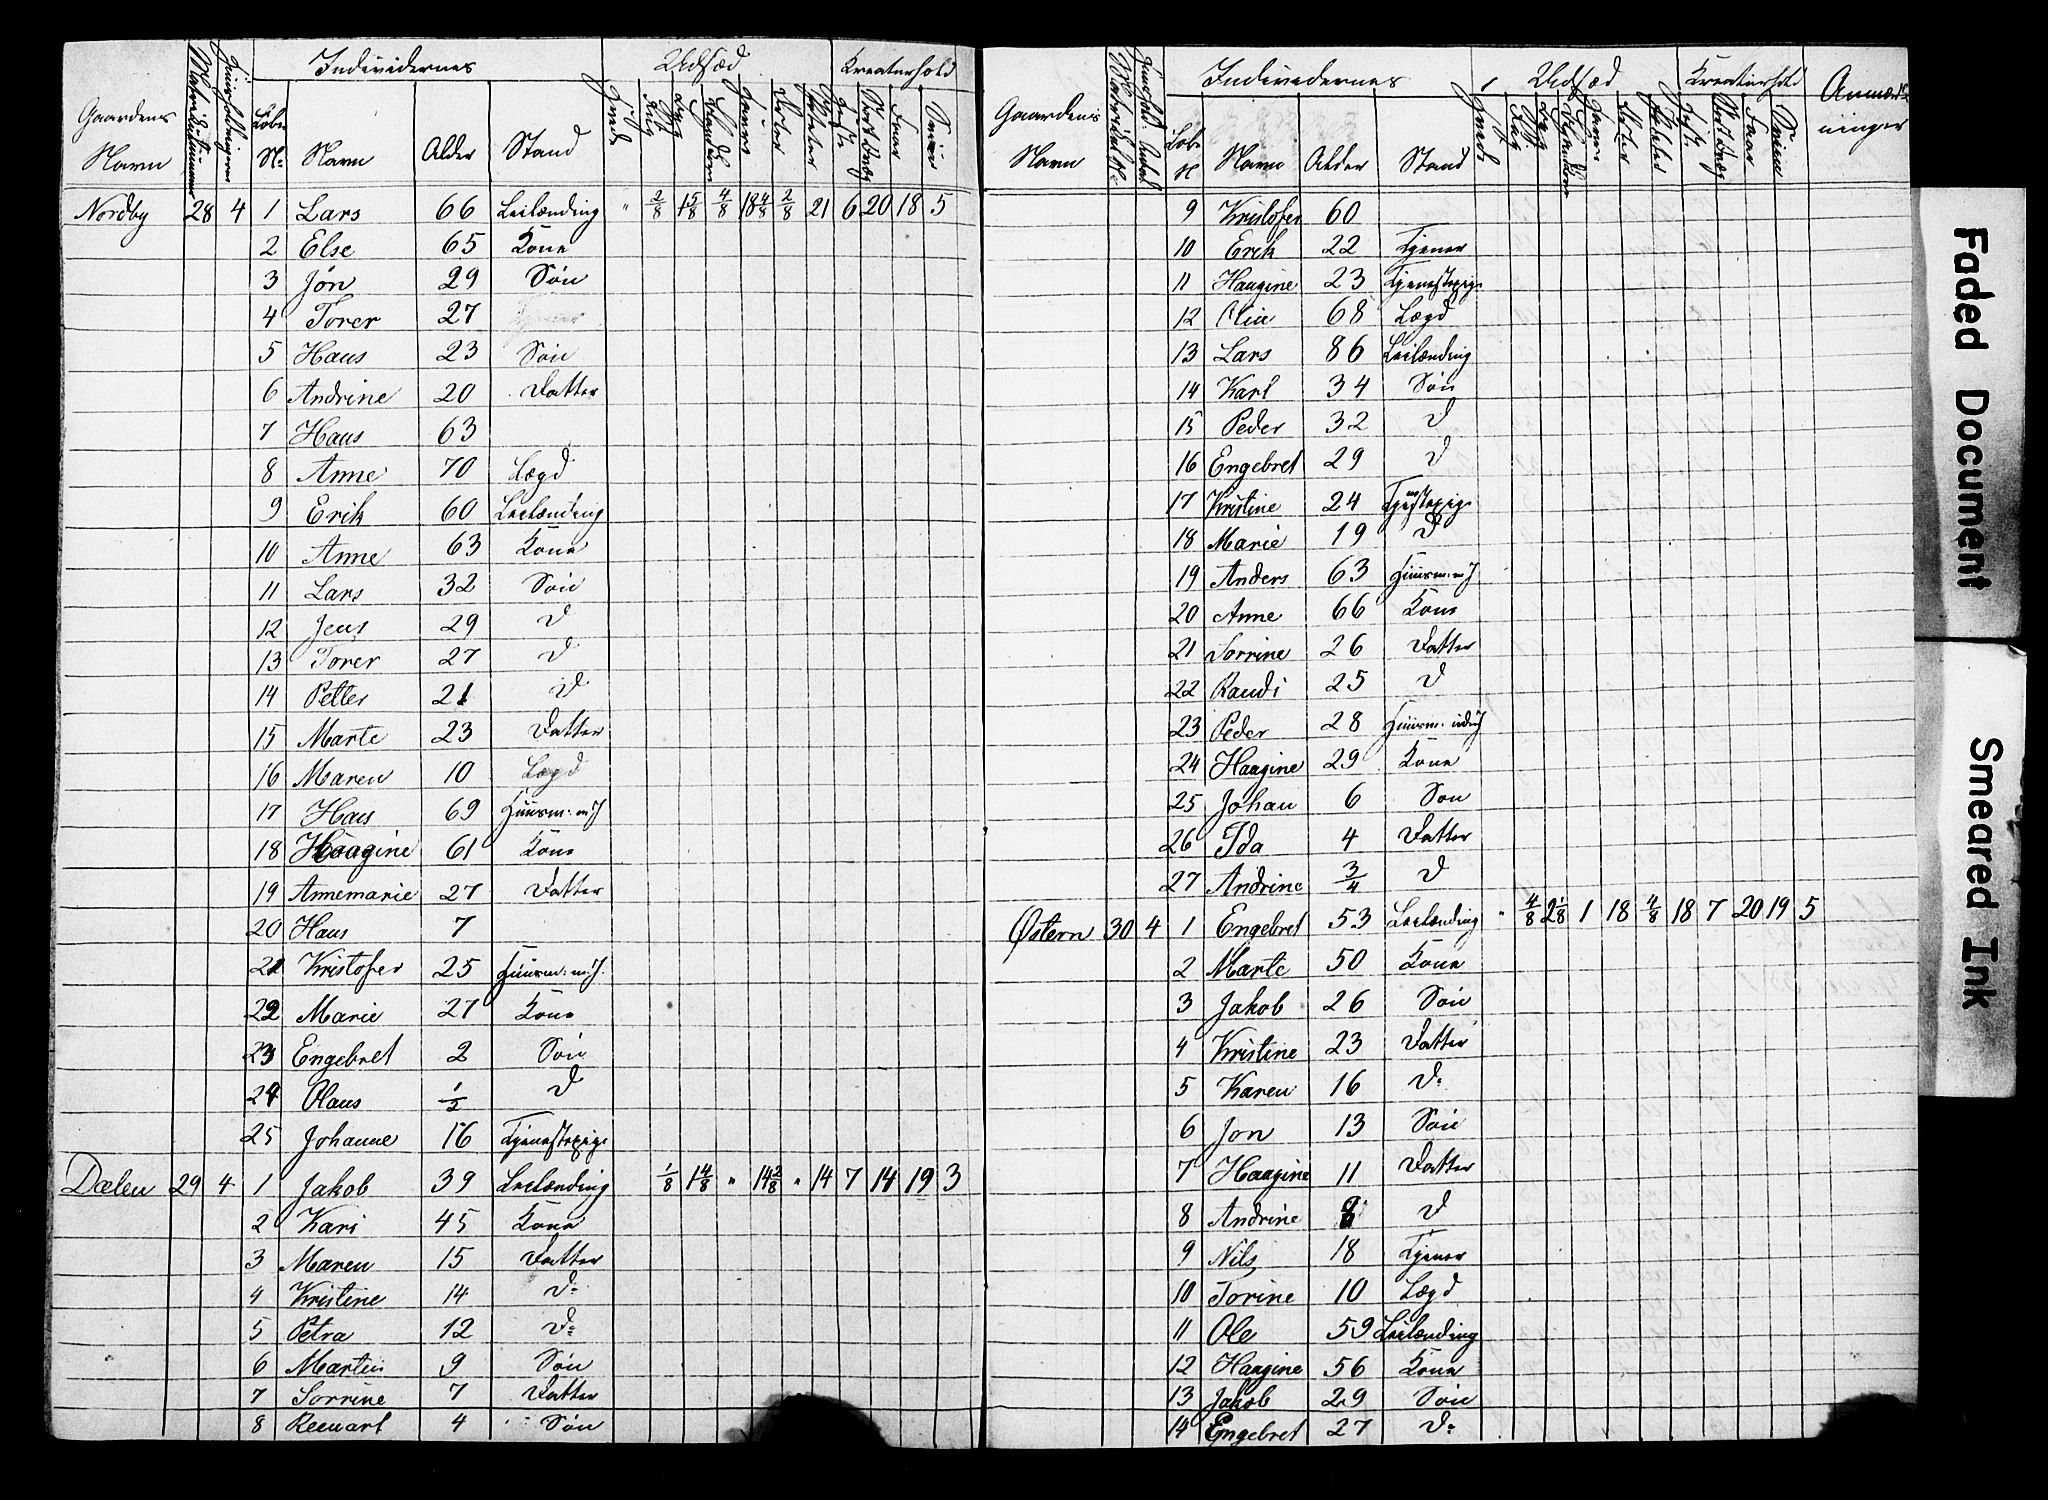 Individernes Udsæd Kreaturhold
Gaardens Navn Løbe N: Navn Alder Stand Hvede Rug Byg Havre Erter Poteter Heste Faar Sviin
Nordby 28 4 1 Lars 66 Leilænding " 2/8 1 5/8 4/8 18 4/8 2/8 21 6 20 18 5
2 Else 65 Kone
3 Jón 29 Søn
4 Torer 27
5 Hans 23 Søn
6 Andrine 20 Datter
7 Hans 63
8 Anne 70 Lægd
9 Erik 60 Leilænding
10 Anne 63 Kone
11 Lars 32 Søn
12 Jens 29 D
13 Torer 27 D
14 Petter 21 D
15 Marte 23 Datter
16 Maren 10 Lægd
17 Hans 69 Huusm: m/J
18 Haagine 61 Kone
19 Annemarie 27 Datter
20 Hans 7
21 Kristofer 25 Huusm: m/J.
22 Marie 27 Kone
23 Engebret 2 Søn
24 Olaus 1/2 D
25 Johanne 16 Tjenestepige
Dælen 29 4 1 Jakob 39 Leilænding 1/8 1 4/8 " 14 2/8 " 14 7 14 19 3
2 Kari 45 Kone
3 Maren 15 Datter
4 Kristine 14 D:
5 Petra 12 D:
6 Martin 9 Søn
7 Sorrine 7 Datter
8 Reenart 4 Søn
Individernes Udsæd Kreaturhold Anmærkninger
Gaardens Navn Løbe N Navn Alder Stand Hvede Rug Byg Havre Erter Poteter Heste Faar Sviin
9 Kristofer 60
10 Erik 22 Tjener
11 Haagine 23 Tjenestepige
12 Oline 68 Lægd
13 Lars 86 Leilænding
14 Karl 34 Søn
15 Peder 32 D
16 Engebret 29 D
17 Kristine 24 Tjenestepige
18 Marie 19 D
19 Anders 63 Huusm: m/J
20 Anne 66 Kone
21 Sorrine 26 Datter
22 Randi 25 D
23 Peder 28 Huusm: ud/J
24 Haagine 29 Kone
25 Johan 6 Søn
26 Ida 4 Datter
27 Andrine 3/4 D
Østern 30 4 1 Engebret 53 Leilænding " 4/8 2 1/8 1 18 4/8 18 7 20 19 5
2 Marte 50 Kone
3 Jakob 26 Søn
4 Kristine 23 Datter
5 Karen 16 D:
6 Jon 13 Søn
7 Haagine 11 Datter
8 Andrine 8 D
9 Nils 18 Tjener
10 Torine 10 Lægd
11 Ole 59 Leilænding
12 Haagine 56 Kone
13 Jakob 29 Søn
14 Engebret 27 D:
Faded Document
Smeared Ink